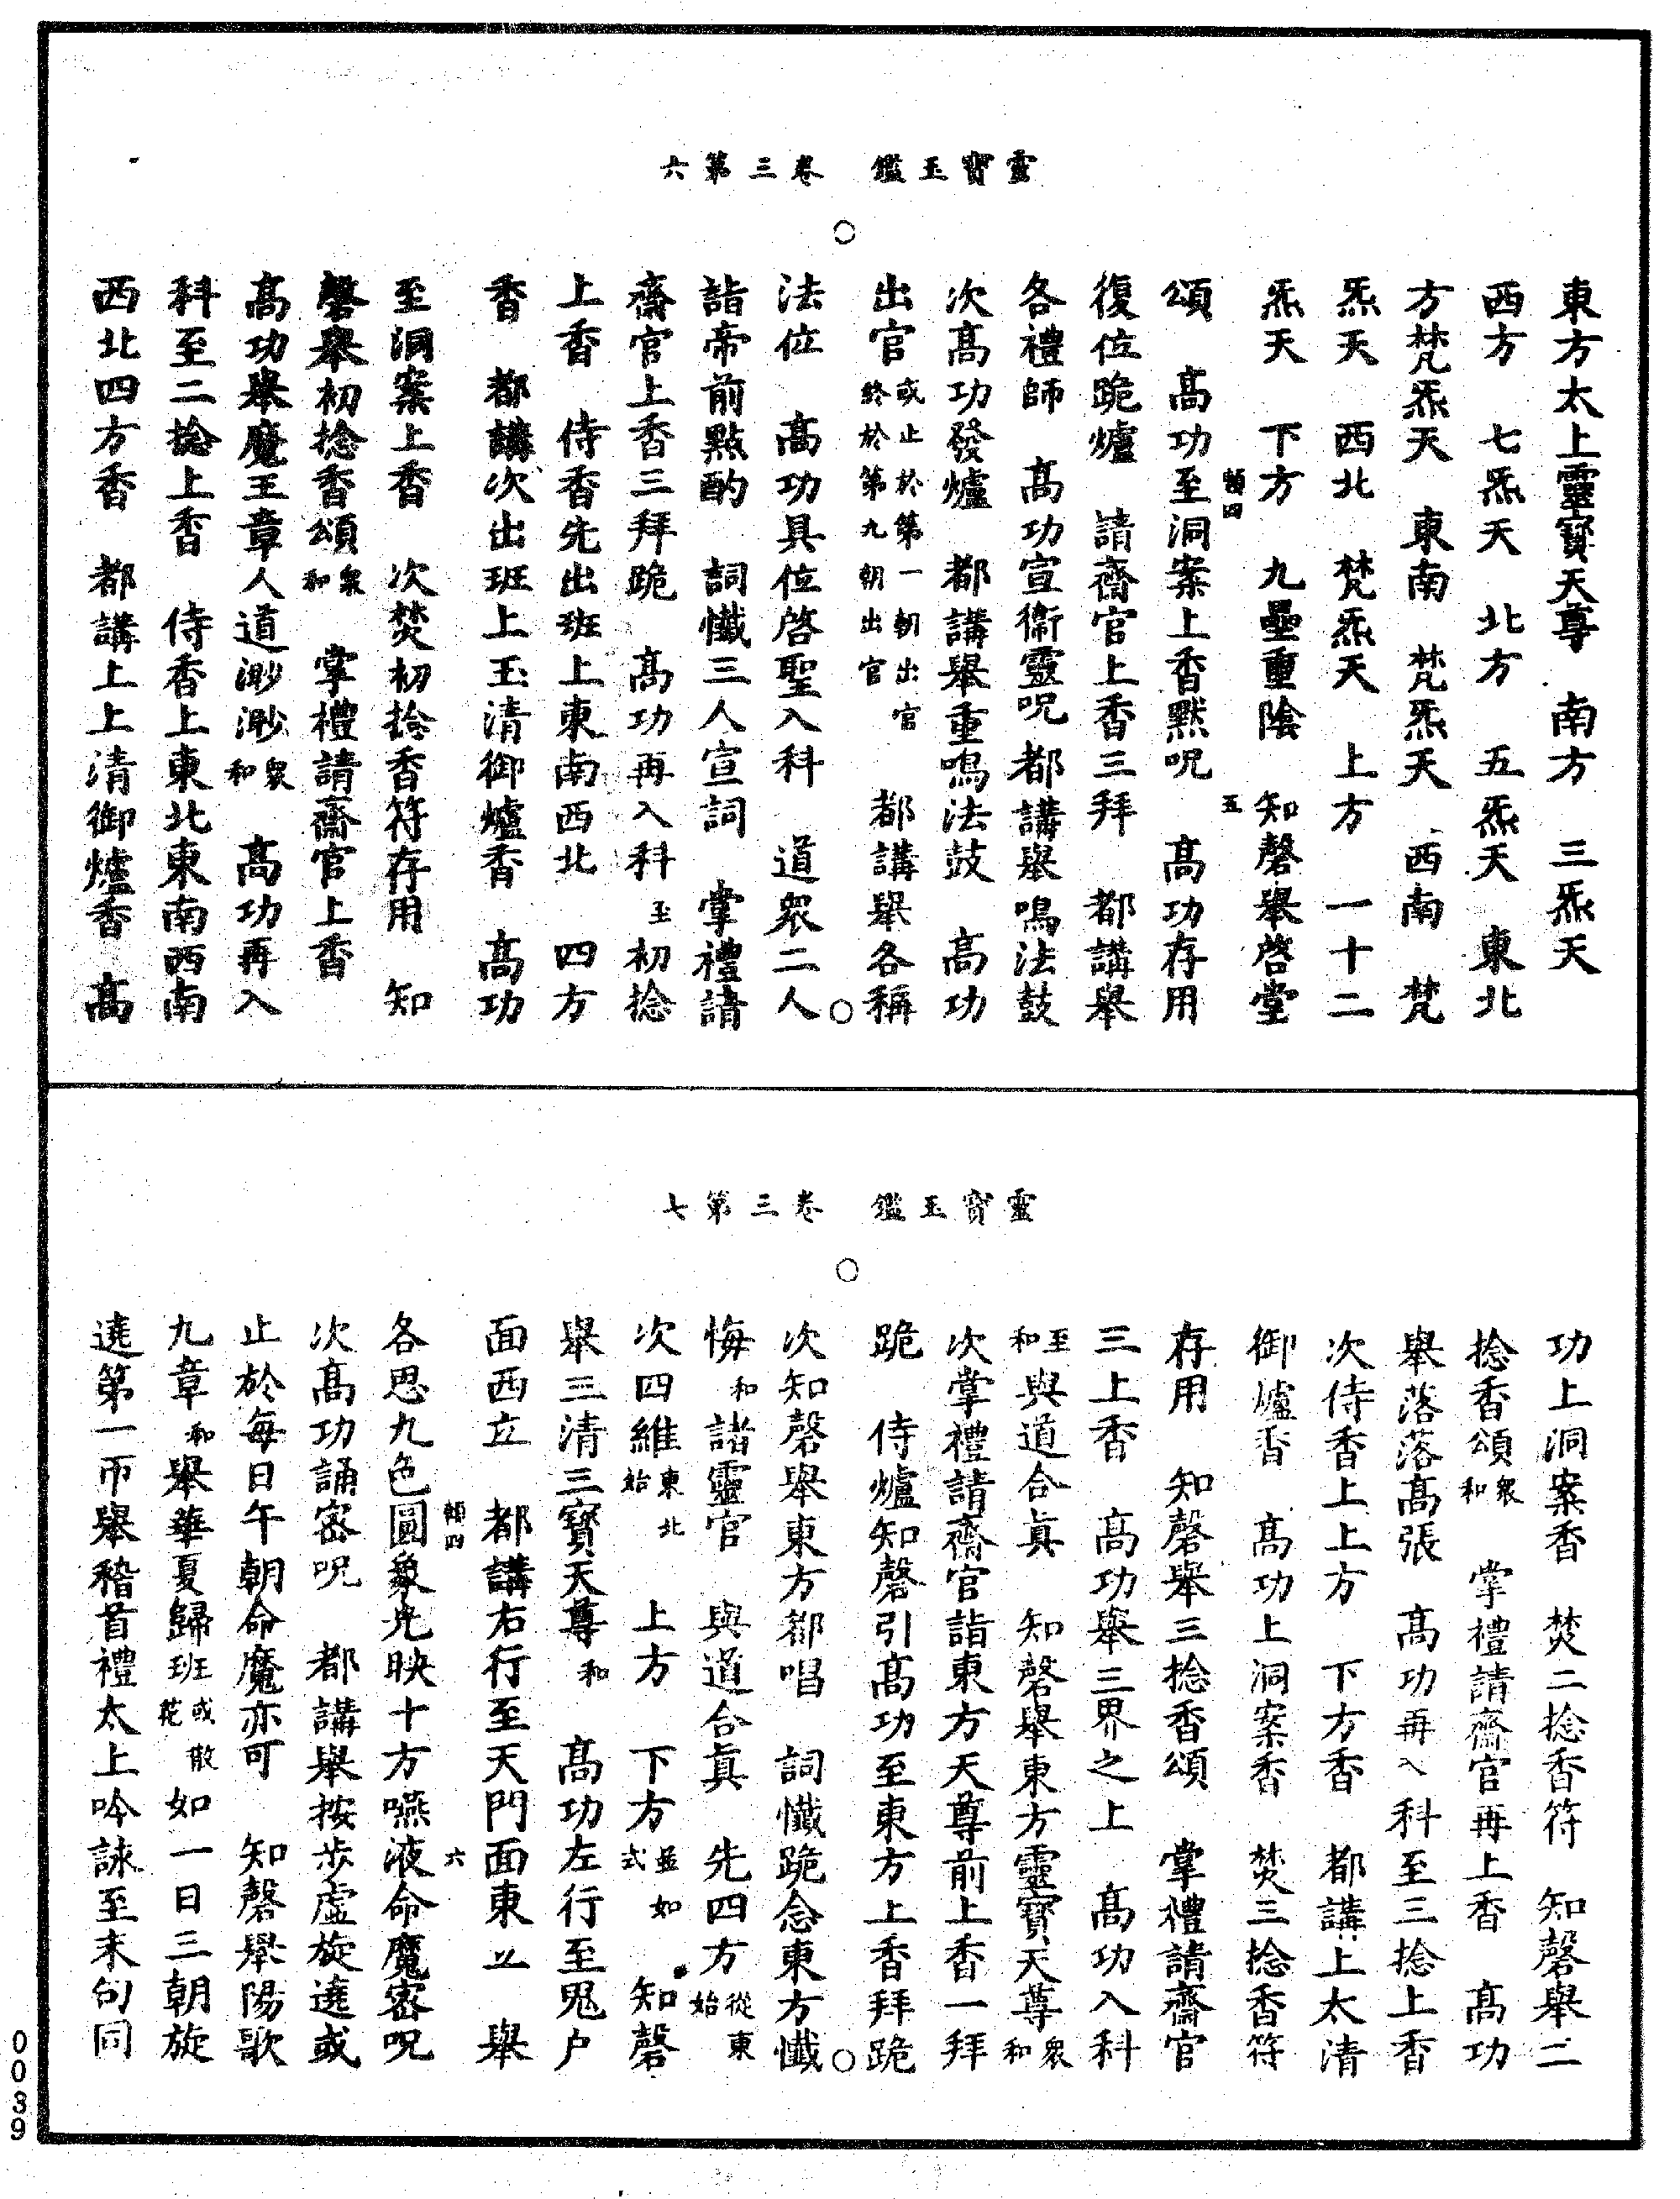 靈寶玉鑑　卷三第六
東方太上靈寶天尊　南方　三炁天
西方　七炁天　北方　五炁天　東北
方梵炁天　東南　梵炁天　西南　梵
炁天　西北　梵炁天　上方　一十二
炁天　下方　九壘重陰　知磬舉啓堂
頌　高功至洞案上香默呪　高功存用
復位跪爐　請齋官上香三拜　都講舉
各禮師　高功宣衞靈呪都講舉鳴法鼓
次高功發爐　都講舉重鳴法鼓　高功
出官或止於第一朝出官終於第九朝出官　都講舉各稱
法位　高功具位啓聖入科　道衆二人
詣帝前點酌　詞懺三人宣詞　掌禮請
齋官上香三拜跪　高功再入科至初捻
上香　侍香先出班上東南西北　四方
香　都講次出班上玉清御爐香　高功
至洞案上香　次焚初捻香符存用　知
磬舉初捻香頌衆和　掌禮請齋官上香
高功舉魔王章人道渺渺衆和　高功再入
科至二捻上香　侍香上東北東南西南
西北四方香　都講上上清御爐香　高
靈寶玉鑑　卷三第七
功上洞案香　焚二捻香符　知磬舉二
捻香頌衆和　掌禮請齋官再上香　高功
舉落落高張　高功再入科至三捻上香
次侍香上上方　下方香　都講上太清
御爐香　高功上洞案香　焚三捻香符
存用　知磬舉三捻香頌　掌禮請齋官
三上香　高功舉三界之上　高功入科
至和與道合眞　知磬舉東方靈寶天尊衆和
次掌禮請齋官詣東方天尊前上香一拜
跪　侍爐知磬引高功至東方上香拜跪
次知磬舉東方都唱　詞懺跪念東方懺
悔和諸靈官　與道合眞　先四方從東始
次四維東北始　上方　下方並如式　知磬
舉三清三寳天尊和　高功左行至鬼户
面西立　都講右行至天門面東立　舉
各思九色圓象光映十方嚥液命魔密呪
次高功誦密呪　都講舉按步虛旋遶或
止於每日午朝命魔亦可　知磬舉陽歌
九章和舉華夏歸班或散花如一日三朝旋
遶第一帀舉稽首禮太上吟詠至末句同
頼四
五
頼四
六
0039